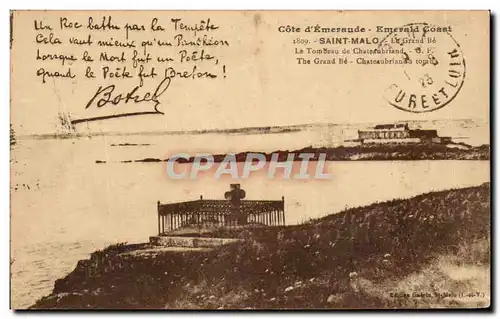 Un Roc battu par la Tempête
Cela vaut mieux qu'un Panthéon
Lorsque le Mort fut un Poëte,
quand le Poëte fut Breton !
Botrel
Côte d'Émeraude - Emerald Coast
1809. - SAINT-MALO. - Le Grand Bé
Le Tombeau de Chateaubriand - G. F.
The Grand Bé - Chateaubriand's tomb
23
EURE ET LOIR
CPAPHIL
Edition Guérin, St-Malo (I.-et-V.)